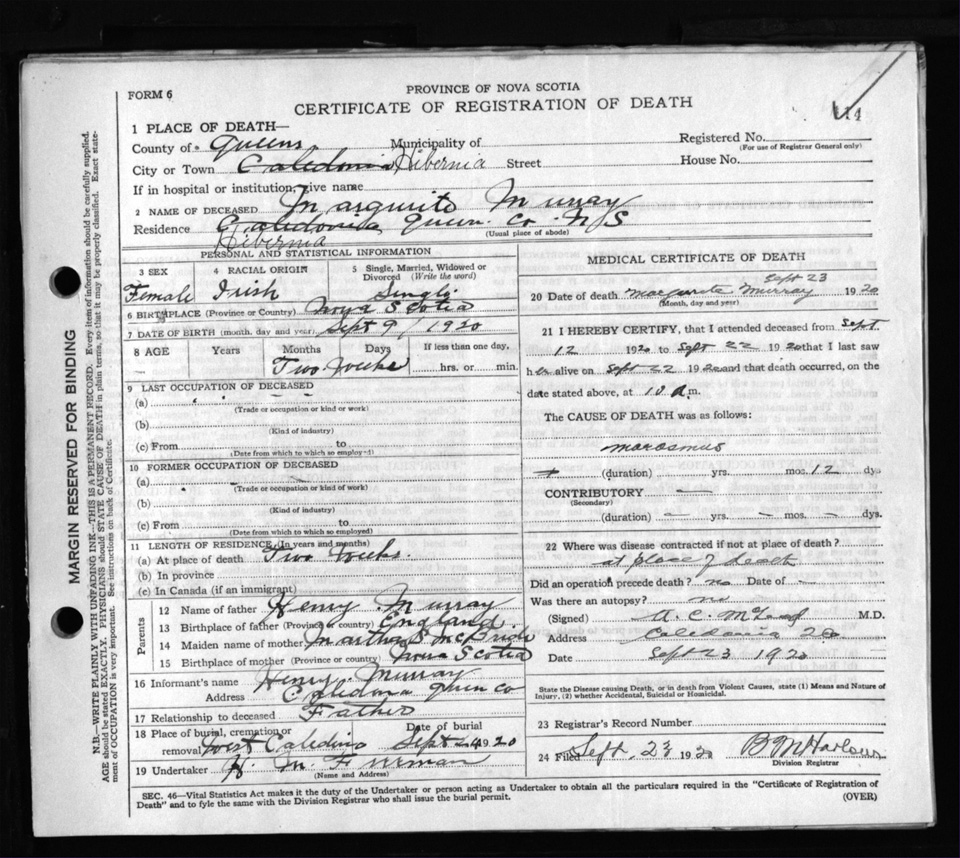 PROVINCE OF NOVA SCOTIA
FORM 6
CERTIFICATE OF REGISTRATION OF DEATH
14
1 PLACE OF DEATH—
County of Queens Municipality of
Registered No.
(For use of Registrar General only)
City or Town Caledonia Hibernia Street
House No.
If in hospital or institution, give name
2 NAME OF DECEASED Marguerite Murray
Residence Caledonia Queen. Co. N S
(Usual place of abode)
Hibernia
PERSONAL AND STATISTICAL INFORMATION
3 SEX
4 RACIAL ORIGIN
5 Single, Married, Widowed or Divorced (Write the word)
Female Irish Single
6 BIRTHPLACE (Province or Country) Nova Scotia
7 DATE OF BIRTH (month, day and year) Sept 9/1920
8 AGE Years Months Days If less than one day,
Two weeks hrs. or min.
9 LAST OCCUPATION OF DECEASED
(a)
(Trade or occupation or kind or work)
(b)
(Kind of industry)
(c) From to
(Date from which to which so employed)
10 FORMER OCCUPATION OF DECEASED
(a)
(Trade or occupation or kind or work)
(b)
(Kind of industry)
(c) From to
(Date from which to which so employed)
11 LENGTH OF RESIDENCE (In years and months)
(a) At place of death Two weeks.
(b) In province
(c) In Canada (if an immigrant)
Parents
12 Name of father Henry Murray
13 Birthplace of father (Province or country) England
14 Maiden name of mother Martha S. McBride
15 Birthplace of mother (Province or country) Nova Scotia
16 Informant's name Henry Murray
Address Caledonia Queen Co
17 Relationship to deceased Father
18 Place of burial, cremation or removal West Caledonia Date of burial Sept 24 1920
19 Undertaker H. M.
(Name and Address)
MEDICAL CERTIFICATE OF DEATH
Sept 23
20 Date of death Murray 1920
(Month, day and year)
21 I HEREBY CERTIFY, that I attended deceased from Sept
12 1920 to Sept 22 1920 that I last saw
her alive on Sept 22 1920 and that death occurred, on the
date stated above, at 10 a m.
The CAUSE OF DEATH was as follows:
marasmus
(duration) yrs. mos. 12 dys
CONTRIBUTORY —
(Secondary)
(duration) — yrs. — mos. — dys.
22 Where was disease contracted if not at place of death?
at place of death
Did an operation precede death? no Date of —
Was there an autopsy? no
(Signed) A. C. McLeod M.D.
Address Caledonia
Date Sept 23 1920
State the Disease causing Death, or in death from Violent Causes, state (1) Means and Nature of
Injury, (2) whether Accidental, Suicidal or Homicidal.
23 Registrar's Record Number
24 Filed Sept. 23 1920 B M Harlow
Division Registrar
SEC. 46—Vital Statistics Act makes it the duty of the Undertaker or person acting as Undertaker to obtain all the particulars required in the "Certificate of Registration of
Death" and to fyle the same with the Division Registrar who shall issue the burial permit.
(OVER)
MARGIN RESERVED FOR BINDING
N.B.—WRITE PLAINLY WITH UNFADING INK—THIS IS A PERMANENT RECORD. Every item of information should be carefully supplied.
AGE should be stated EXACTLY. PHYSICIANS should STATE CAUSE OF DEATH in plain terms, so that it may be properly classified. Exact state-
ment of OCCUPATION is very important. See instructions on back of Certificate.